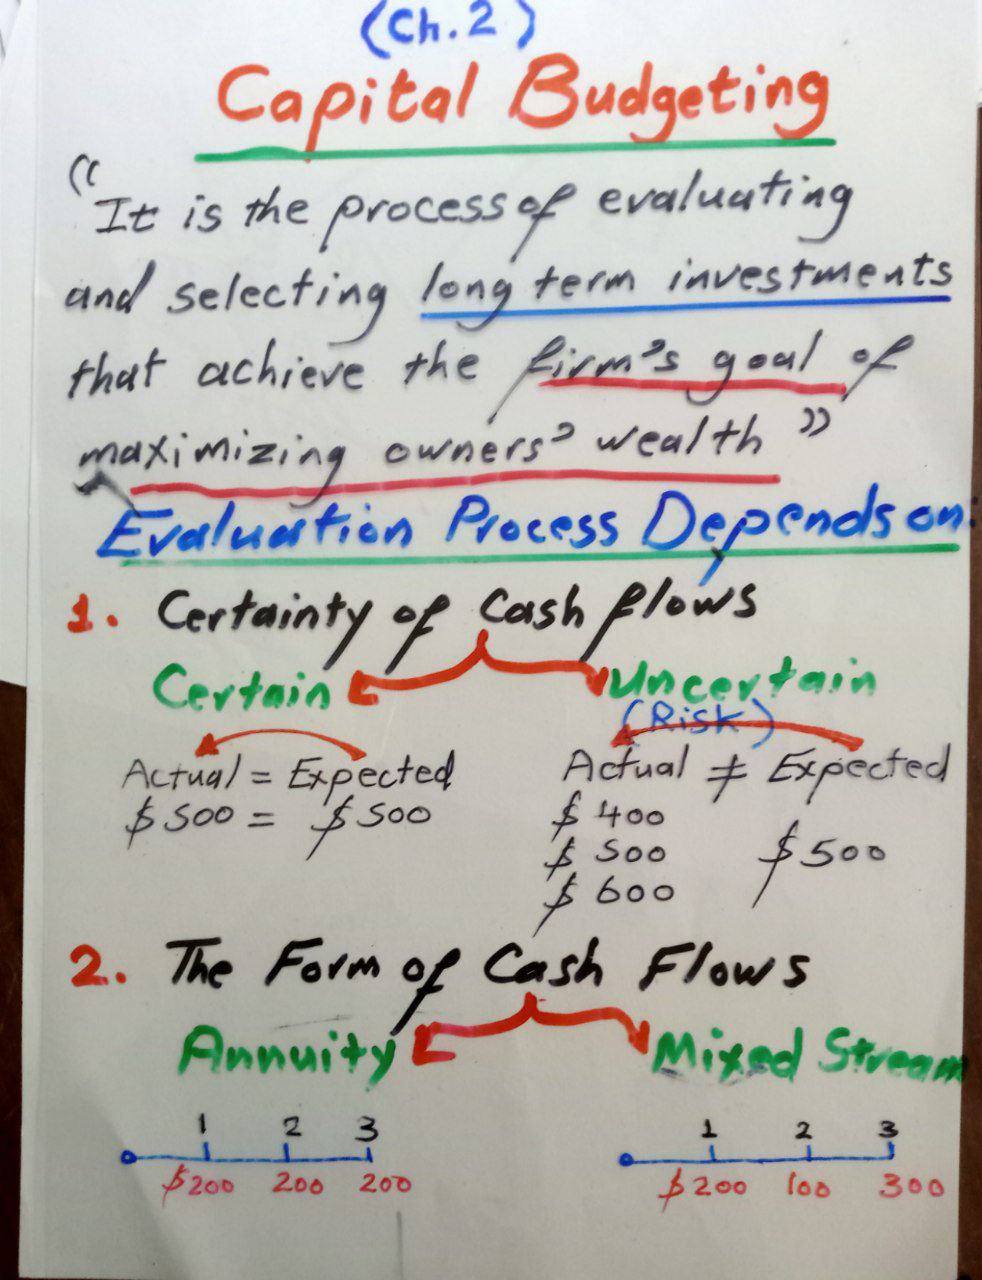 (Ch.2)
Capital Budgeting
“It is the process of evaluating
and selecting long term investments
that achieve the firm's goal of
maximizing owners' wealth”
Evaluation Process Depends on:
1. Certainty of Cash flows
Certain Uncertain
(Risk)
Actual = Expected Actual ≠ Expected
$500 = $500 $400
$500 $500
$600
2. The Form of Cash Flows
Annuity Mixed Stream
1 2 3 1 2 3
$200 200 200 $200 100 300